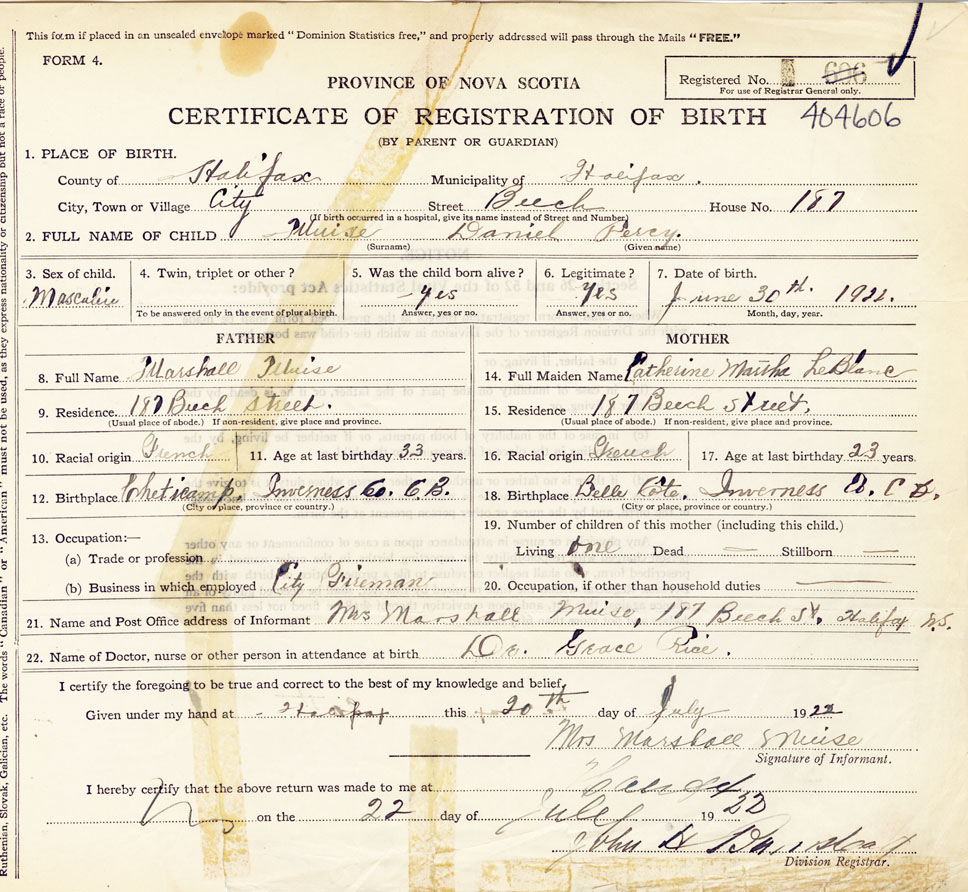 This form if placed in an unsealed envelope marked "Dominion Statistics free," and properly addressed will pass through the Mails "FREE."
FORM 4.
Registered No. 606
For use of Registrar General only.
PROVINCE OF NOVA SCOTIA
CERTIFICATE OF REGISTRATION OF BIRTH 404606
(BY PARENT OR GUARDIAN)
1. PLACE OF BIRTH.
County of Halifax Municipality of Halifax.
City, Town or Village City Street Beech House No. 187
(If birth occurred in a hospital, give its name instead of Street and Number)
2. FULL NAME OF CHILD Muise Daniel Percy.
(Surname) (Given name)
3. Sex of child. 4. Twin, triplet or other? 5. Was the child born alive? 6. Legitimate? 7. Date of birth.
Masculine Yes Yes June 30th. 1922.
To be answered only in the event of plural birth. Answer, yes or no. Answer, yes or no. Month, day, year.
FATHER MOTHER
8. Full Name Marshall Muise 14. Full Maiden Name Catherine Martha LeBlanc
9. Residence 187 Beech Street. 15. Residence 187 Beech Street.
(Usual place of abode.) If non-resident, give place and province. (Usual place of abode.) If non-resident, give place and province.
10. Racial origin French 11. Age at last birthday 33 years. 16. Racial origin French 17. Age at last birthday 23 years.
12. Birthplace Cheticamp, Inverness Co. C B. 18. Birthplace Belle Cote, Inverness Co. C B.
(City or place, province or country.) (City or place, province or country.)
13. Occupation:— 19. Number of children of this mother (including this child.)
(a) Trade or profession Living one Dead — Stillborn —
(b) Business in which employed City Fireman 20. Occupation, if other than household duties —
21. Name and Post Office address of Informant Mrs Marshall Muise, 187 Beech St. Halifax N.S.
22. Name of Doctor, nurse or other person in attendance at birth Dr. Grace Rice.
I certify the foregoing to be true and correct to the best of my knowledge and belief,
Given under my hand at Halifax this 20th day of July 1922
Mrs Marshall Muise
Signature of Informant.
I hereby certify that the above return was made to me at
on the 22 day of July 1922
John
Division Registrar.
Ruthenian, Slovak, Galician, etc. The words "Canadian" or "American" must not be used, as they express nationality or citizenship but not a race or people.